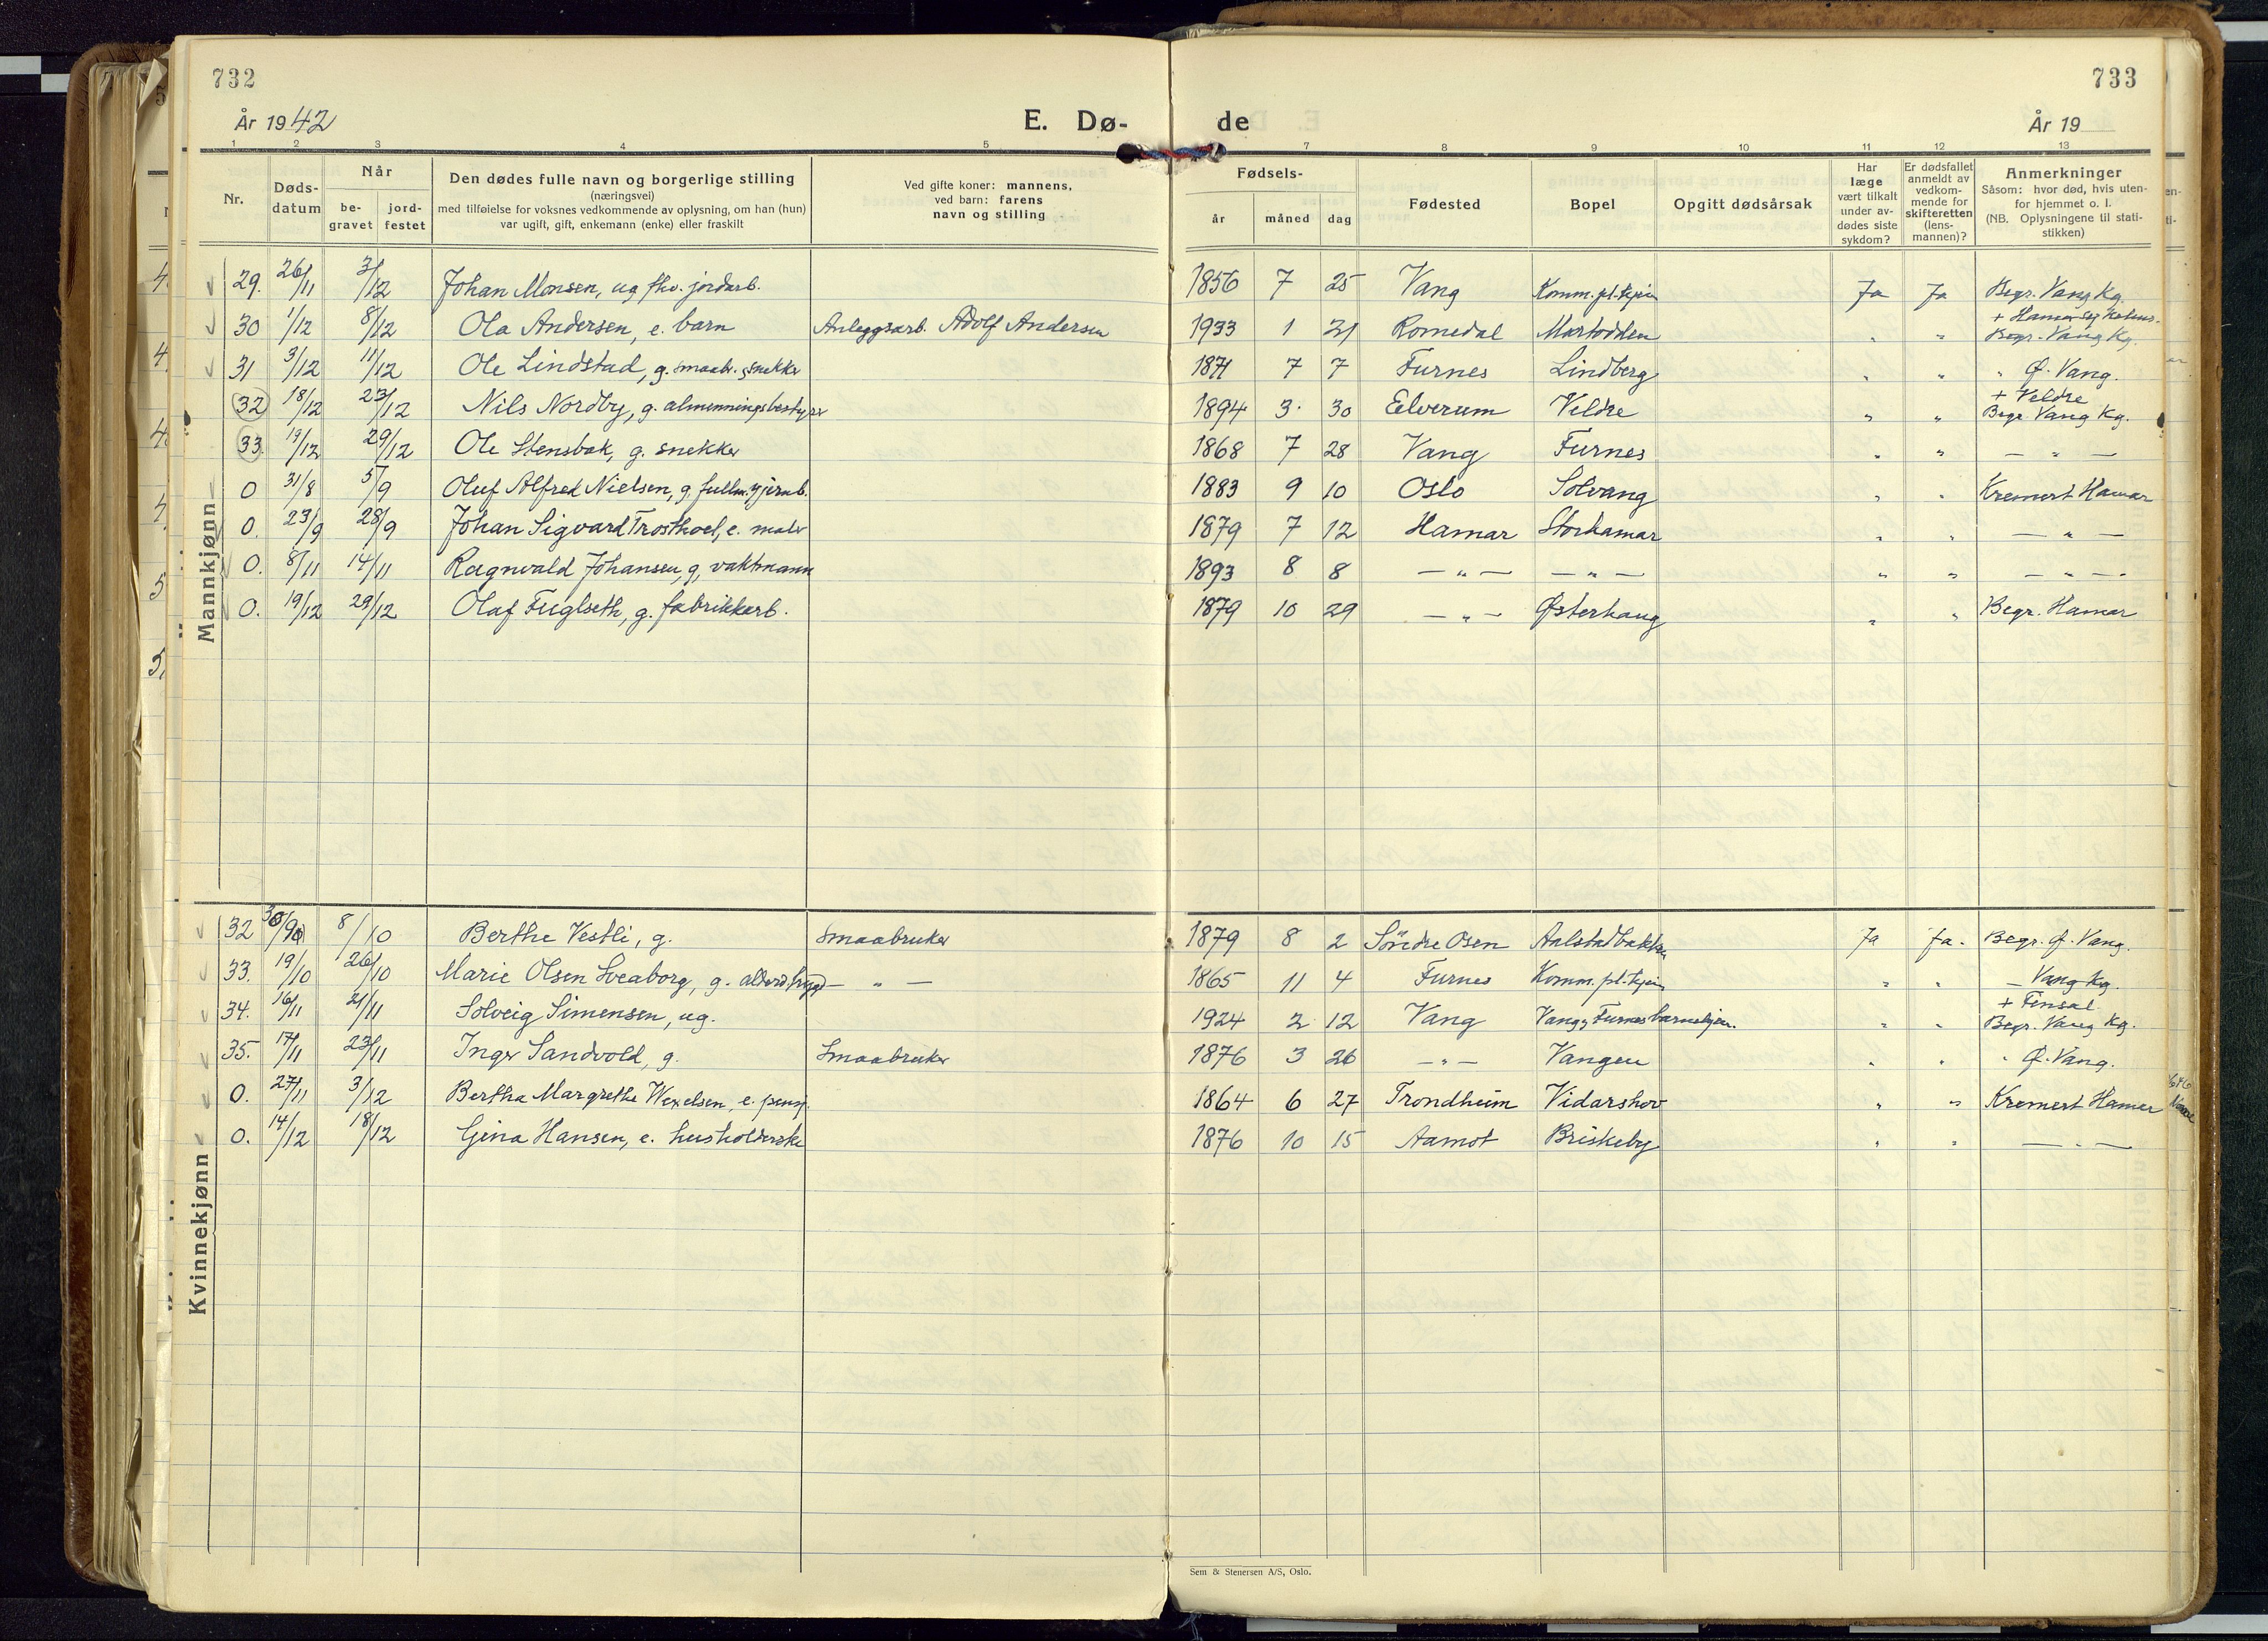 732
733
År 1942
E. Dø-
de
År 19
1 2 3 4 5 7 8 9 10 11 12 13
Nr.
Døds-
datum
Når
be-
gravet
jord-
festet
Den dødes fulle navn og borgerlige stilling
(næringsvei)
med tilføielse for voksnes vedkommende av oplysning, om han (hun)
var ugift, gift, enkemann (enke) eller fraskilt
Ved gifte koner: mannens,
ved barn: farens
navn og stilling
Fødsels-
år måned dag
Fødested
Bopel
Opgitt dødsårsak
Har
læge
vært tilkalt
under av-
dødes siste
sykdom?
Er dødsfallet
anmeldt av
vedkom-
mende for
skifteretten
(lens-
mannen)?
Anmerkninger
Såsom: hvor død, hvis uten-
for hjemmet o. l.
(NB. Oplysningene til stati-
stikken)
Mannkjønn
29. 26/11 3/12 Johan Monsen, ug fhv. jordarb. 1856 7 25 Vang Komm. pl.hjem Ja Ja Begr. Vang Kg.
30 1/12 8/12 Ola Andersen, e. barn Anleggsarb. Adolf Andersen 1933 1 21 Romedal Martodden " " + Hamar Begr. Vang Kg.
31 3/12 11/12 Ole Lindstad, g. smaabr. & snekker 1871 7 7 Furnes Lindberg " " " Ø. Vang.
32 18/12 23/12 Nils Nordby, g. almenningsbestyrer 1894 3 30 Elverum Veldre " " + Veldre Begr. Vang Kg.
33. 19/12 29/12 Ole Stensbak, g. snekker 1868 7 28 Vang Furnes " " — " —
0 31/8 5/9 Oluf Alfred Nielsen, g. fullm. v jernb. 1883 9 10 Oslo Solvang " " Kremert Hamar
0. 23/9 28/9 Johan Sigvard Trosthoel, e. maler 1879 7 12 Hamar Storhamar " " — " —
0. 8/11 14/11 Ragnvald Johansen, g, vaktmann 1893 8 8 — " — — " — " " — " —
0. 19/12 29/12 Olaf Fuglseth, g. fabrikkarb. 1879 10 29 — " — Østerhaug " " Begr. Hamar
Kvinnekjønn
32 30/9 8/10 Berthe Vestli, g. Smaabruker 1879 8 2 Søndre Osen Aalstadbakken Ja Ja. Begr. Ø. Vang.
33. 19/10 26/10 Marie Olsen Sveaborg, g. alderstrygd — " — 1865 11 4 Furnes Komm. pl.hjem " " — Vang Kg.
34. 16/11 21/11 Solveig Simensen, ug. 1924 2 12 Vang Vang & Furnes barnehjem. " " + Finsal Begr. Vang Kg.
35. 17/11 23/11 Inger Sandvold, g. Smaabruker 1876 3 26 — " — Vangen " " " Ø. Vang.
0. 27/11 3/12 Bertha Margrethe Wexelsen, e. pensj. 1864 6 27 Trondheim Vidarshov " " Kremert Hamar
0. 14/12 18/12 Gina Hansen, e. husholderske 1876 10 15 Aamot Briskeby " " — " —
Sem & Stenersen A/S, Oslo.